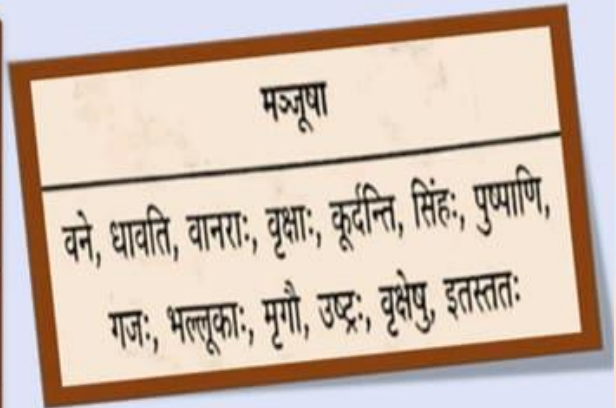 मञ्जूषा
वने, धावति, वानराः, वृक्षाः, कूर्दन्ति, सिंहः, पुष्पाणि,
गजः, भल्लूकाः, मृगौ, उष्ट्रः, वृक्षेषु, इतस्ततः